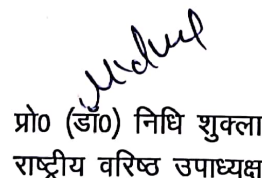 प्रो० (डॉ०) निधि शुक्ला
राष्ट्रीय वरिष्ठ उपाध्यक्ष